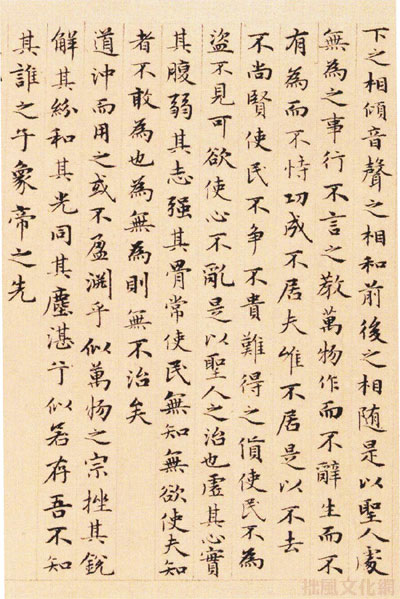 下之相傾音聲之相和前後之相随是以聖人處
無為之事行不言之教萬物作而不辭生而不
有為而不恃功成不居夫惟不居是以不去
不尚賢使民不争不貴難得之貨使民不為
盗不見可欲使心不亂是以聖人之治也虚其心實
其腹弱其志强其骨常使民無知無欲使夫知
者不敢為也為無為則無不治矣
道沖而用之或不盈渊乎似萬物之宗挫其銳
解其紛和其光同其塵湛兮似若存吾不知
其誰之子象帝之先
拙風文化網